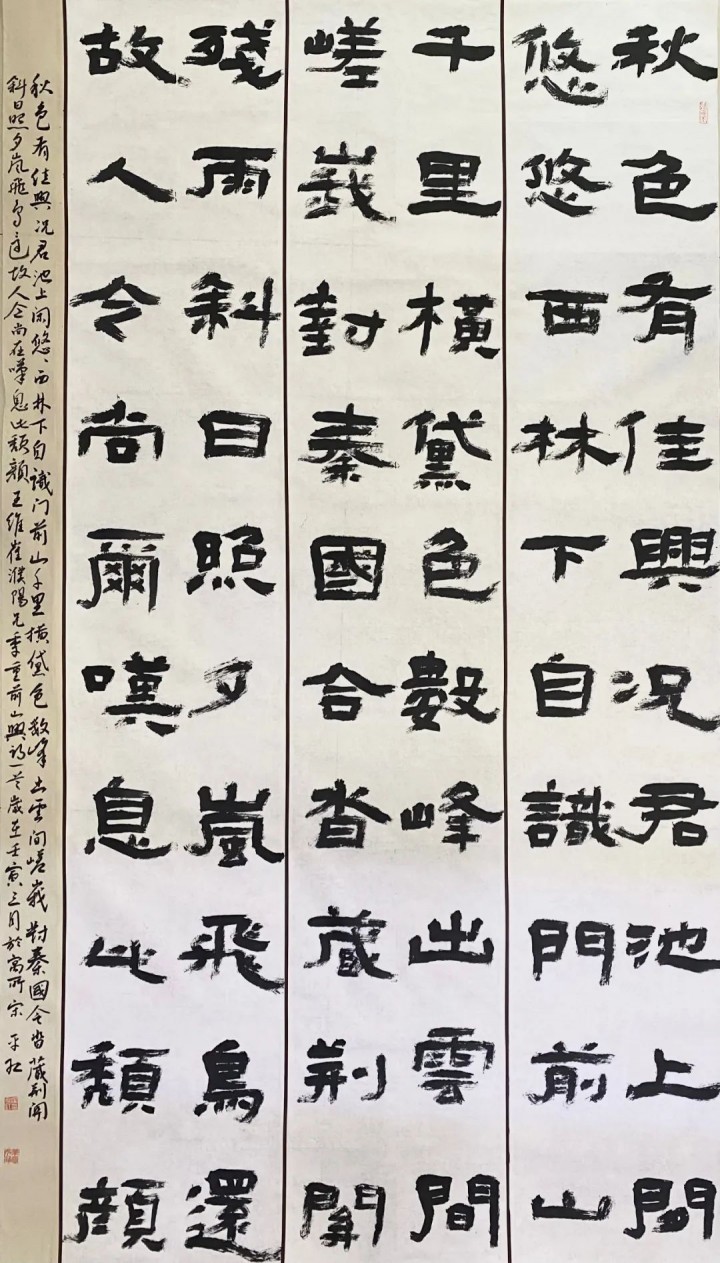 秋色有佳興况君池上閒
悠悠西林下自識門前山
千里橫黛色數峰出雲間
嵯峩對秦國合沓蔵荆関
殘雨斜日照夕嵐飛鳥還
故人今尚爾嘆息此頹顏
秋色有佳興况君池上閑悠〻西林下自識门前山千里横黛色数峰出雲间嵯峩對秦國合沓蔵荆関
斜日照夕嵐飛鳥还故人今尚在嘆息此頹顏王維崔濮陽兄季重前山興詩一首歲在壬寅三月於寓所宗平